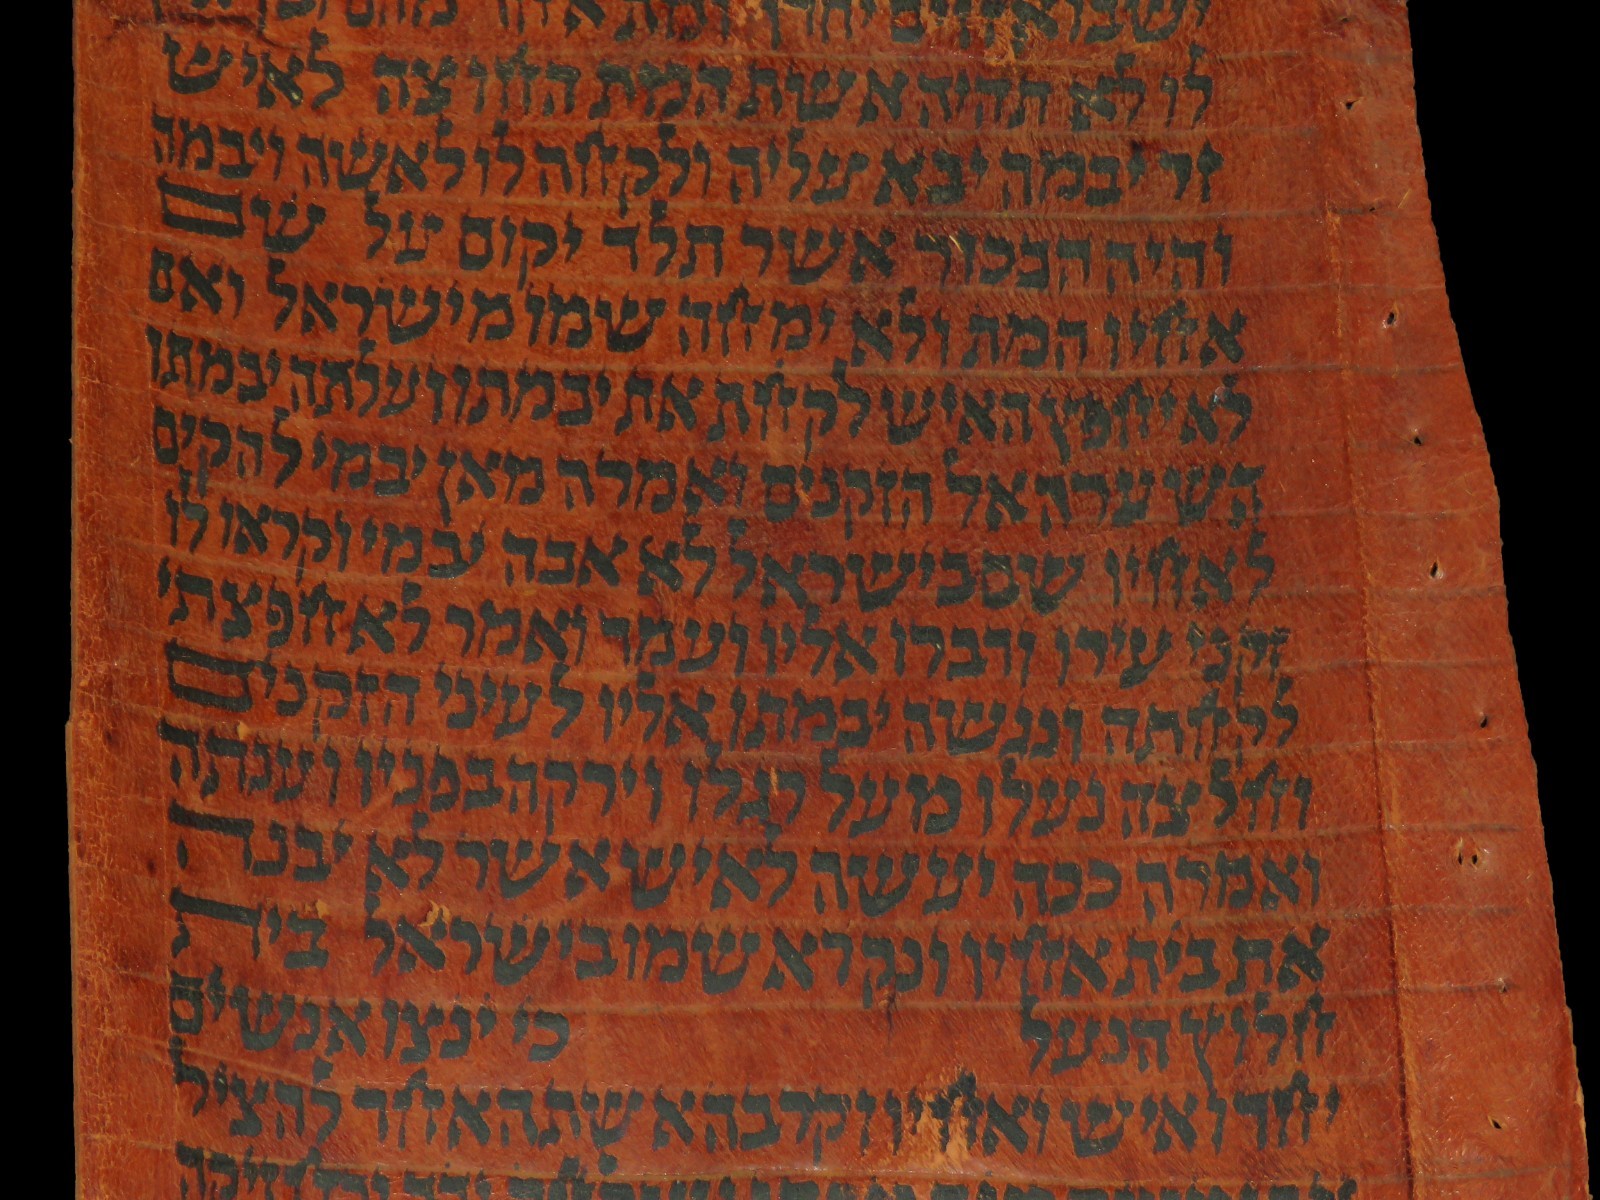 ישבו אחים יחדו ומת אחד מהם ובן אין
לו לא תהיה אשת המת החוצה לאיש
זר יבמה יבא עליה ולקחה לו לאשה ויבמה
והיה הבכור אשר תלד יקום על שם
אחיו המת ולא ימחה שמו מישראל ואם
לא יחפץ האיש לקחת את יבמתו ועלתה יבמתו
השערה אל הזקנים ואמרה מאן יבמי להקים
לאחיו שם בישראל לא אבה יבמי וקראו לו
זקני עירו ודברו אליו ועמד ואמר לא חפצתי
לקחתה ונגשה יבמתו אליו לעיני הזקנים
וחלצה נעלו מעל רגלו וירקה בפניו וענתה
ואמרה ככה יעשה לאיש אשר לא יבנה
את בית אחיו ונקרא שמו בישראל בית
חלוץ הנעל כי ינצו אנשים
יחדו איש ואחיו וקרבה אשת האחד להציל